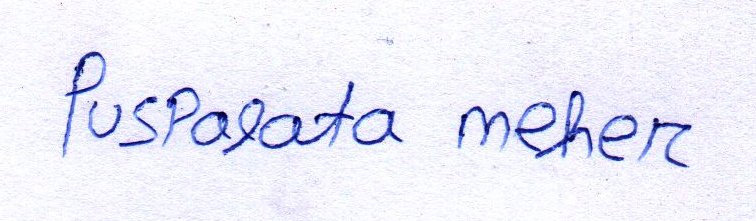 Puspalata meher